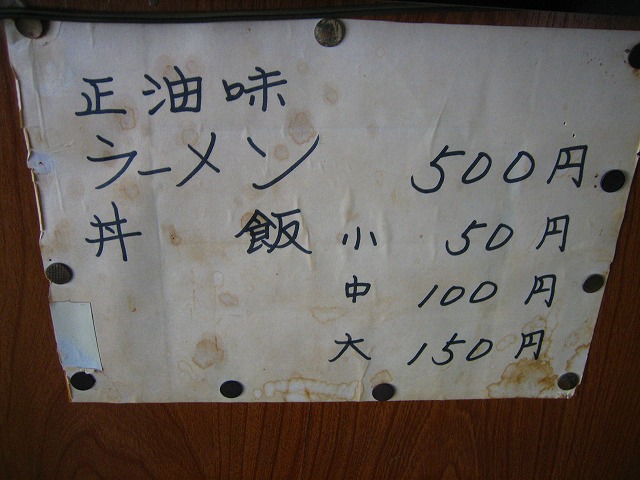 正油味
ラーメン 500円
丼 飯 小 50円
中 100円
大 150円